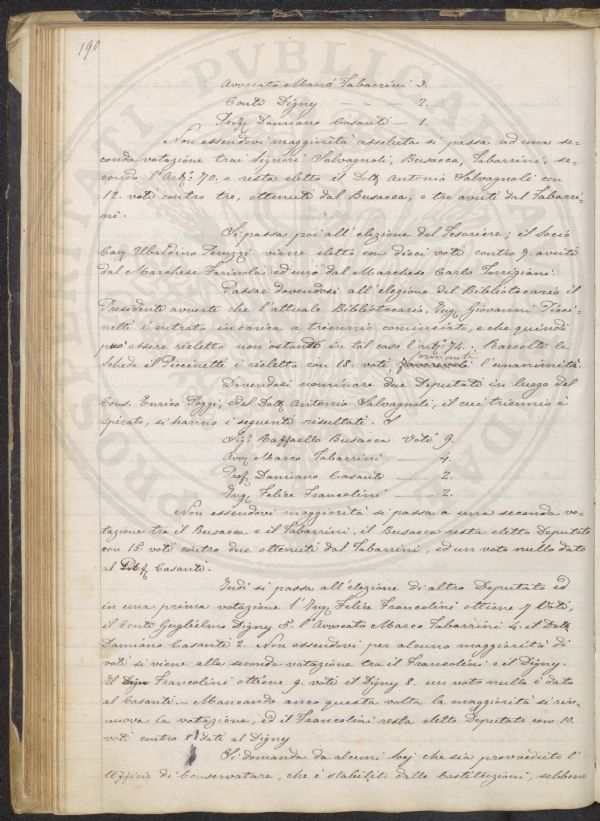 190
Avvocato Marco Tabarrini 3.
Conte Digny — — — 2.
Prof. Damiano Casanti — 1.
Non essendovi maggiorità assoluta si passa ad una se-
conda votazione trai Signori Salvagnoli, Busacca, Tabarrini, se-
condo l'Art. 70. e resta eletto il Dott. Antonio Salvagnoli con
12. voti contro tre, ottenuti dal Busacca, e tre avuti dal Tabarri-
ni.
Si passa poi all'elezione del Tesoriere; il Socio
Cav. Ubaldino Peruzzi viene eletto con dieci voti contro 7. avuti
dal Marchese Farinola ed uno dal Marchese Carlo Torrigiani.
Passar dovendosi all'elezione del Bibliotecario il
Presidente avverte che l'attuale Bibliotecario, Ing. Giovanni Picci-
netti è entrato in carica a triennio cominciato, e che quindi
può essere rieletto non ostando in tal caso l'art. 74. Raccolte le
schede il Piccinetti è rieletto con 18. voti, l'unanimità.
Dovendosi nominare due Deputati in luogo del
Cons. Enrico Poggi, e del Dott. Antonio Salvagnoli, il cui triennio è
spirato, si hanno i seguenti risultati.
Sig. Raffaello Busacca voti 9.
Avv. Marco Tabarrini — 4.
Prof. Damiano Casanti — 2.
Ing. Felice Francolini — 2.
Non essendovi maggiorità si passa a una seconda vo-
tazione tra il Busacca e il Tabarrini, il Busacca resta eletto Deputato
con 15. voti contro due ottenuti dal Tabarrini, ed un voto nullo dato
al Casanti.
Indi si passa all'elezione di altro Deputato ed
in una prima votazione l'Ing. Felice Francolini ottiene 7 Voti,
il Conte Guglielmo Digny 5. l'Avvocato Marco Tabarrini 4. il Dott.
Damiano Casanti 2. Non essendovi per alcuno maggiorità di
voti si viene alla seconda votazione tra il Francolini e il Digny.
Il Francolini ottiene 9. voti il Digny 8. un voto nullo è dato
al Casanti. Mancando anco questa volta la maggiorità si rin-
nuova la votazione, ed il Francolini resta eletto Deputato con 10.
voti contro 8 dati al Digny
Si domanda da alcuni Socj che sia provveduto l'
Uffizio di Conservatore, che è stabilito dalle Costituzioni, sebbene